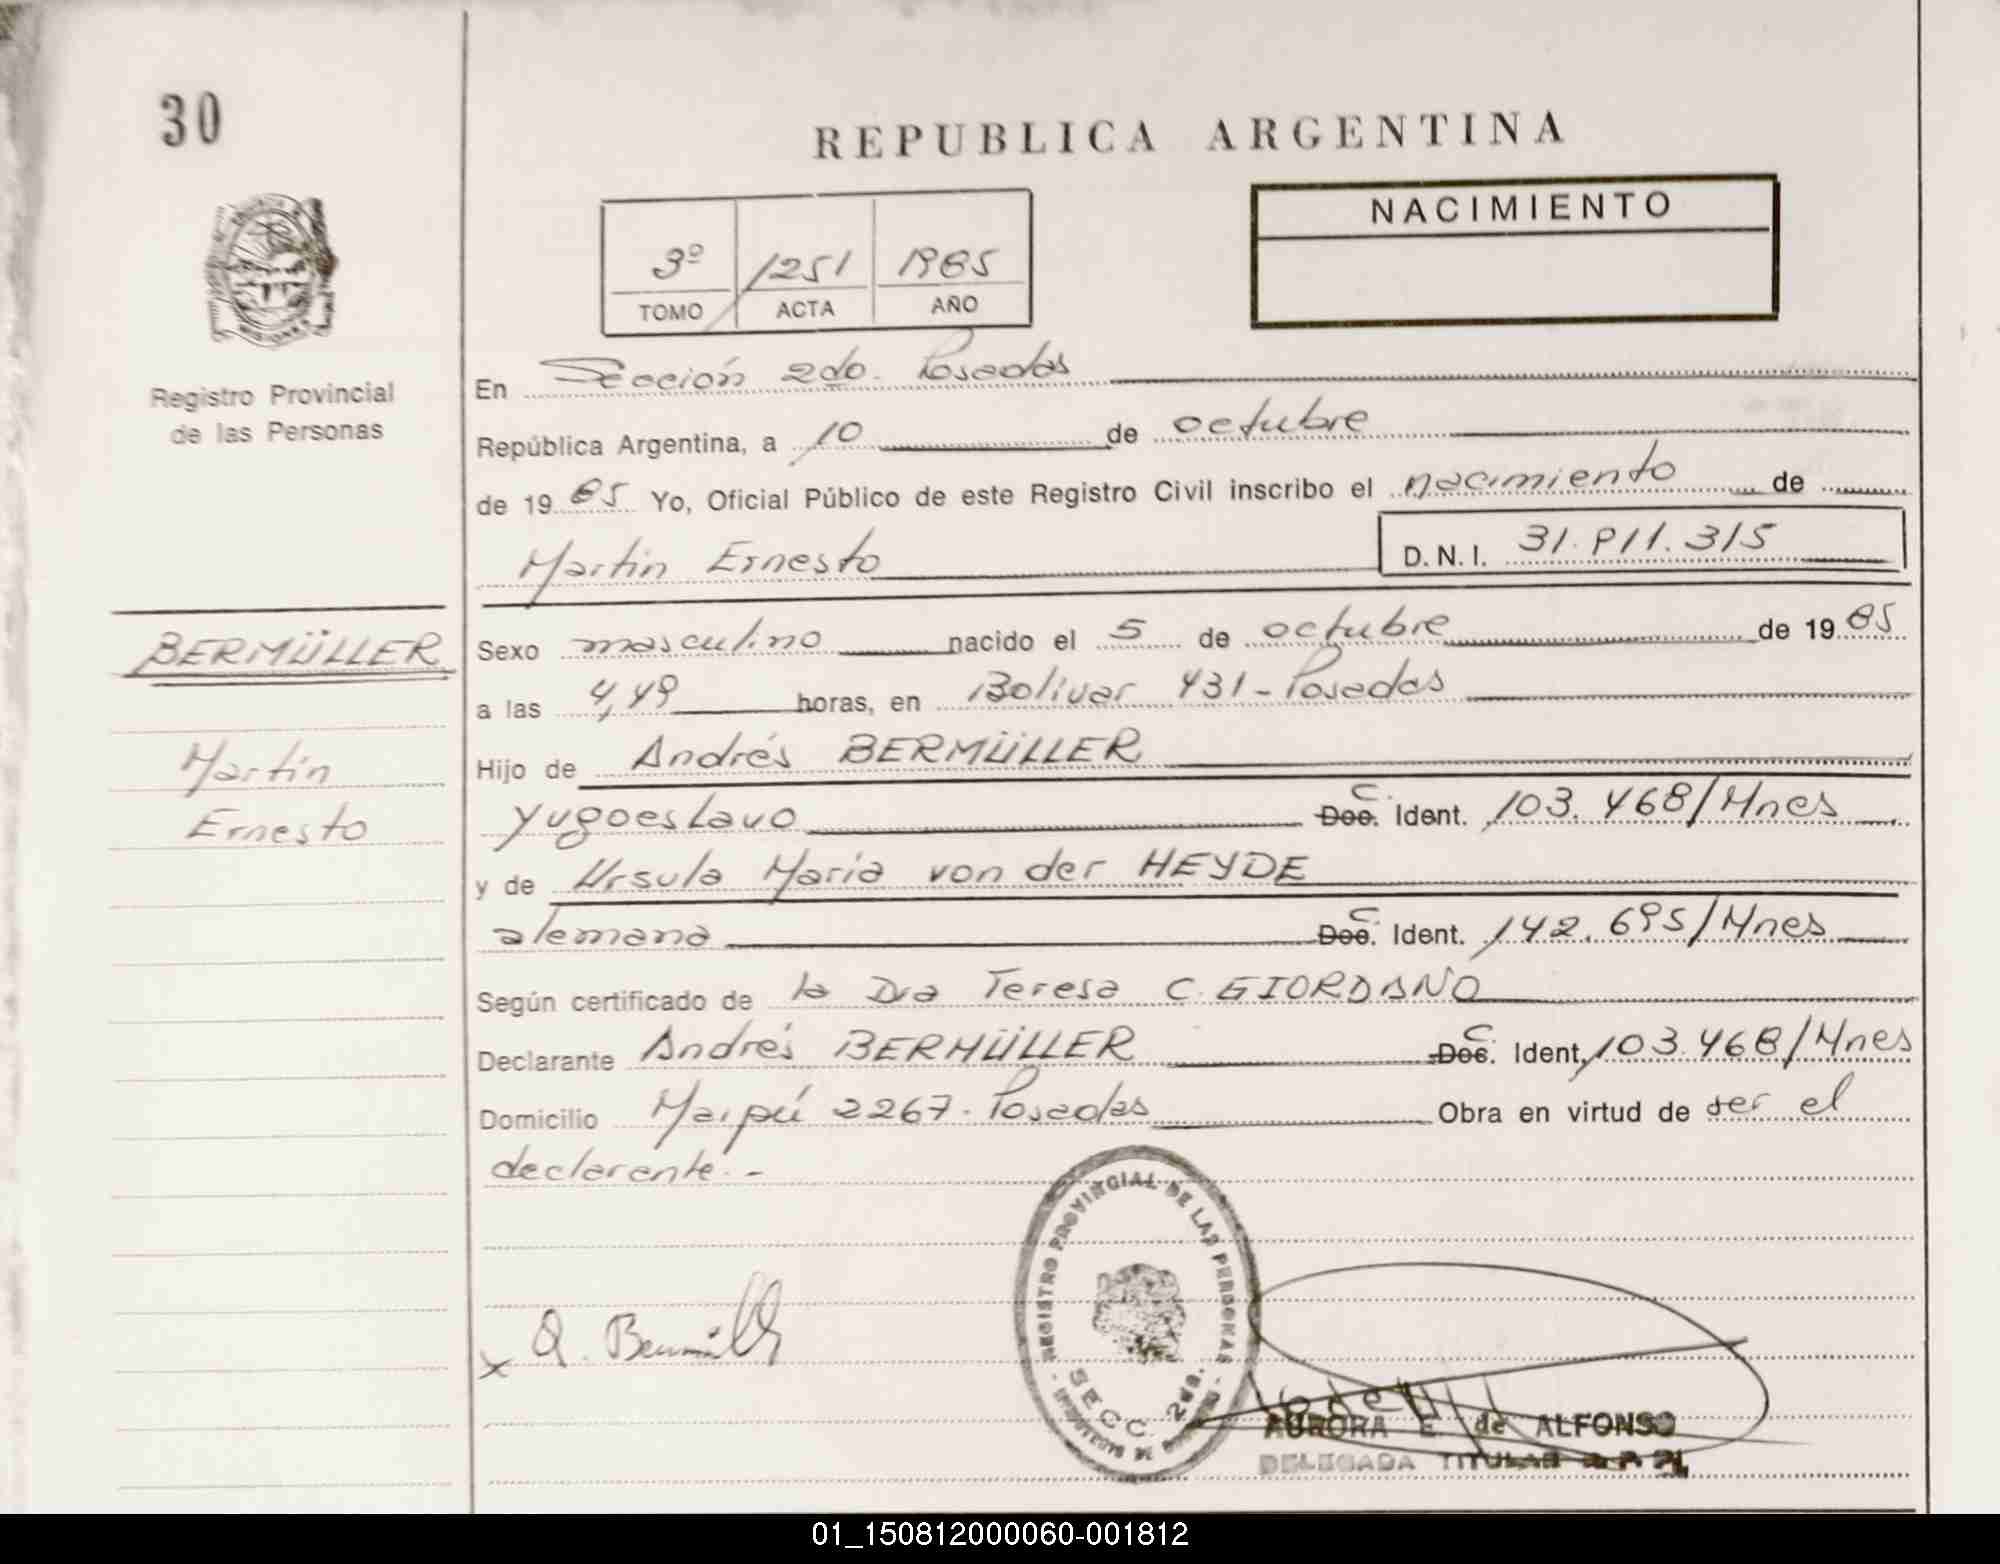 30
REPUBLICA ARGENTINA
NACIMIENTO
3º 1251 1985
TOMO ACTA AÑO
Registro Provincial
de las Personas
En Sección 2da. Posadas
República Argentina, a 10 de octubre
de 1985 Yo, Oficial Público de este Registro Civil inscribo el nacimiento de
Martín Ernesto D.N.I. 31.911.315
BERMÜLLER
Martín
Ernesto
Sexo masculino nacido el 5 de octubre de 1985
a las 4,49 horas, en Bolívar 431 - Posadas
Hijo de Andrés BERMÜLLER
yugoeslavo C. Doc. Ident. 103.468/Mnes
y de Ursula María von der HEYDE
alemana C. Doc. Ident. 142.695/Mnes
Según certificado de la Dra Teresa C. GIORDANO
Declarante Andrés BERMÜLLER C. Doc. Ident. 103.468/Mnes
Domicilio Maipú 2267 - Posadas Obra en virtud de ser el
declarante.-
REGISTRO PROVINCIAL DE LAS PERSONAS
SECC. 2da.
x A. Bermüller
AURORA E. de ALFONSO
DELEGADA TITULAR
01_150812000060-001812